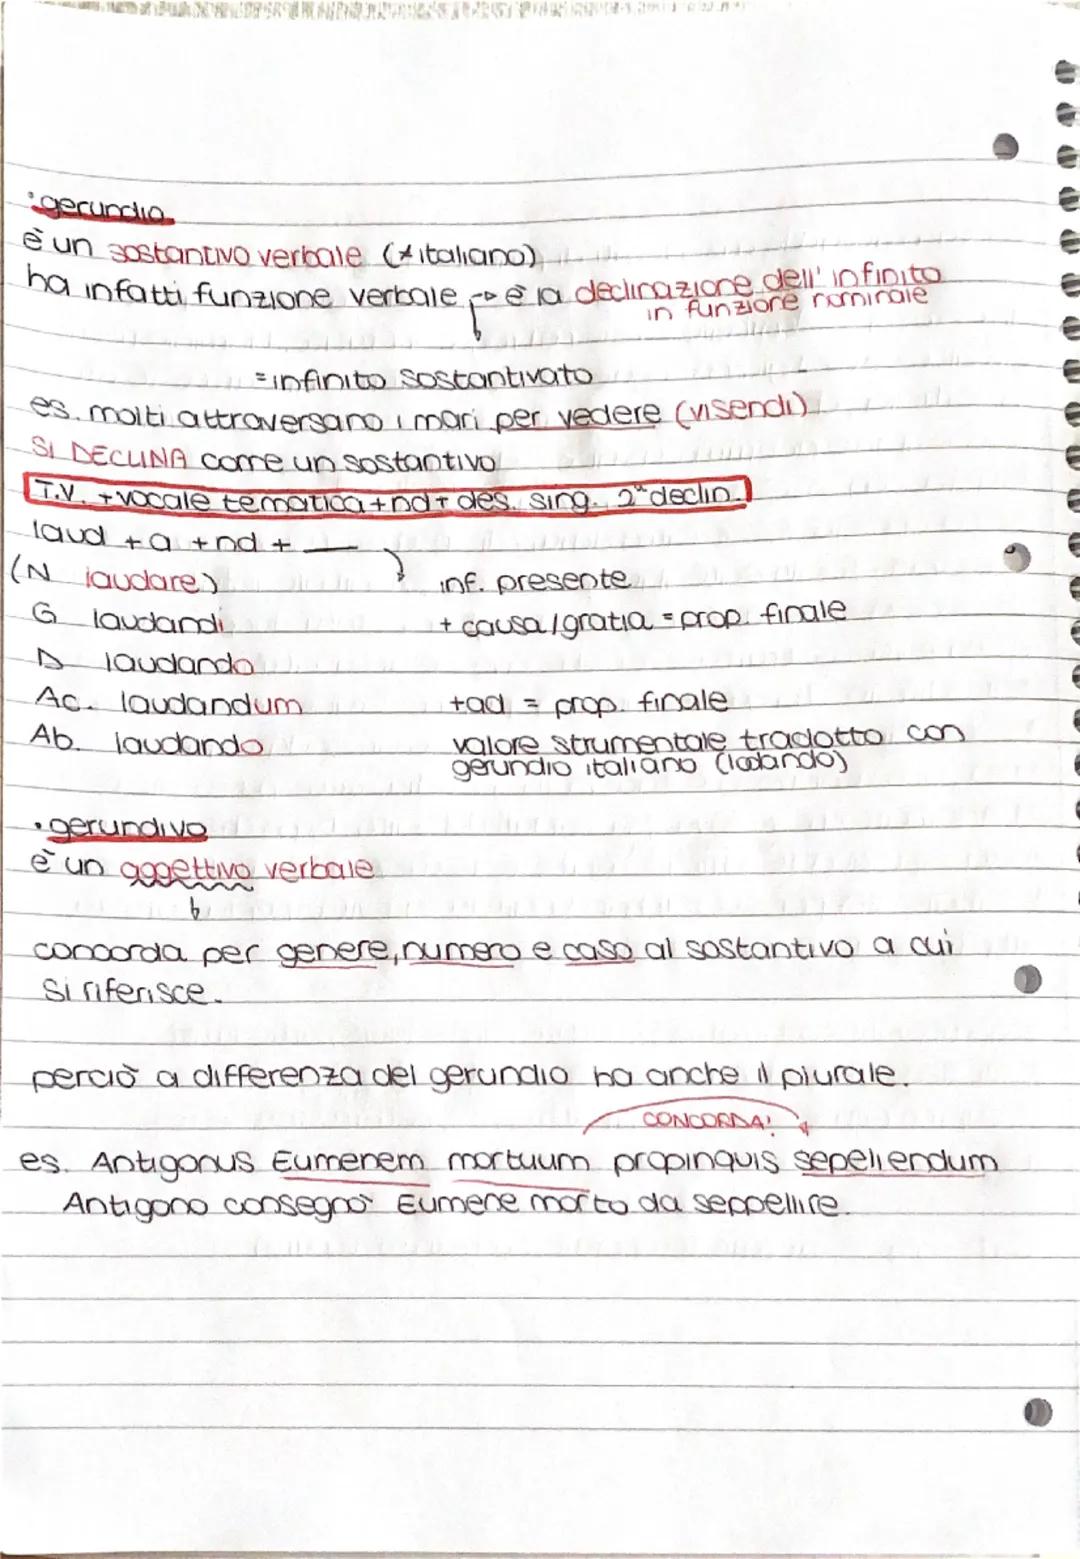 • gerundio
è un sostantivo verbale (≠ italiano)
ha infatti funzione verbale → è la declinazione dell'infinito
in funzione nominale
= infinito sostantivato
es. molti attraversano i mari per vedere (visendi)
SI DECLINA come un sostantivo
T.V. + vocale tematica + nd + des. sing. 2ª declin.
laud + a + nd + __
(N laudare) inf. presente
G laudandi + causa/gratia = prop. finale
D laudando
Ac. laudandum + ad = prop. finale
Ab. laudando valore strumentale tradotto con
gerundio italiano (lodando)
• gerundivo
è un aggettivo verbale
concorda per genere, numero e caso al sostantivo a cui
si riferisce.
perciò a differenza del gerundio ha anche il plurale.
CONCORDA!
es. Antigonus Eumenem mortuum propinquis sepeliendum
Antigono consegnò Eumene morto da seppellire.